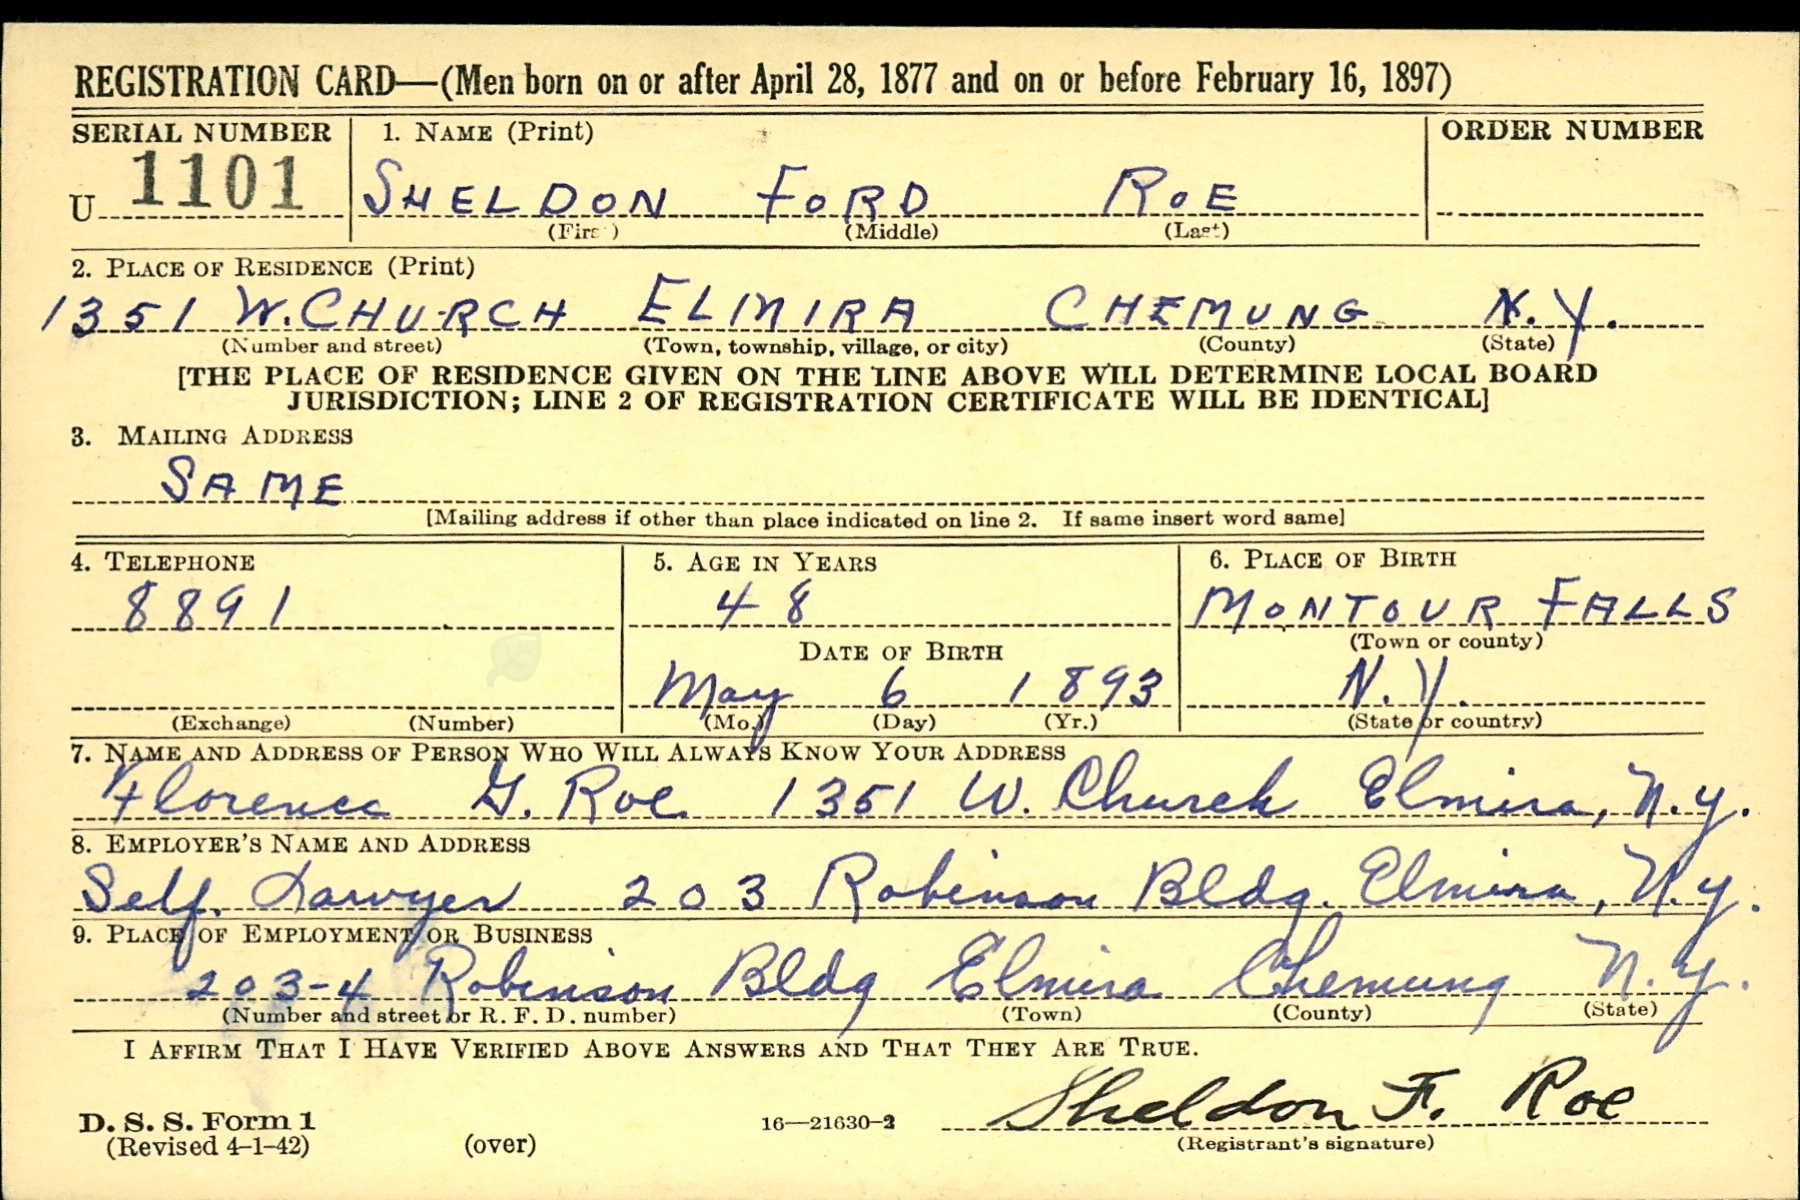 REGISTRATION CARD—(Men born on or after April 28, 1877 and on or before February 16, 1897)
SERIAL NUMBER 1. NAME (Print) ORDER NUMBER
U 1101 SHELDON FORD ROE
(First) (Middle) (Last)
2. PLACE OF RESIDENCE (Print)
1351 W. CHURCH ELMIRA CHEMUNG N.Y.
(Number and street) (Town, township, village, or city) (County) (State)
[THE PLACE OF RESIDENCE GIVEN ON THE LINE ABOVE WILL DETERMINE LOCAL BOARD
JURISDICTION; LINE 2 OF REGISTRATION CERTIFICATE WILL BE IDENTICAL]
3. MAILING ADDRESS
SAME
[Mailing address if other than place indicated on line 2. If same insert word same]
4. TELEPHONE 5. AGE IN YEARS 6. PLACE OF BIRTH
8891 48 MONTOUR FALLS
(Town or county)
DATE OF BIRTH
May 6 1893 N.Y.
(Exchange) (Number) (Mo.) (Day) (Yr.) (State or country)
7. NAME AND ADDRESS OF PERSON WHO WILL ALWAYS KNOW YOUR ADDRESS
Florence G. Roe 1351 W. Church Elmira, N.Y.
8. EMPLOYER'S NAME AND ADDRESS
Self. Lawyer 203 Robinson Bldg. Elmira, N.Y.
9. PLACE OF EMPLOYMENT OR BUSINESS
203-4 Robinson Bldg Elmira Chemung N.Y.
(Number and street or R. F. D. number) (Town) (County) (State)
I AFFIRM THAT I HAVE VERIFIED ABOVE ANSWERS AND THAT THEY ARE TRUE.
Sheldon F. Roe
D. S. S. Form 1 16—21630-2
(Revised 4-1-42) (over) (Registrant's signature)